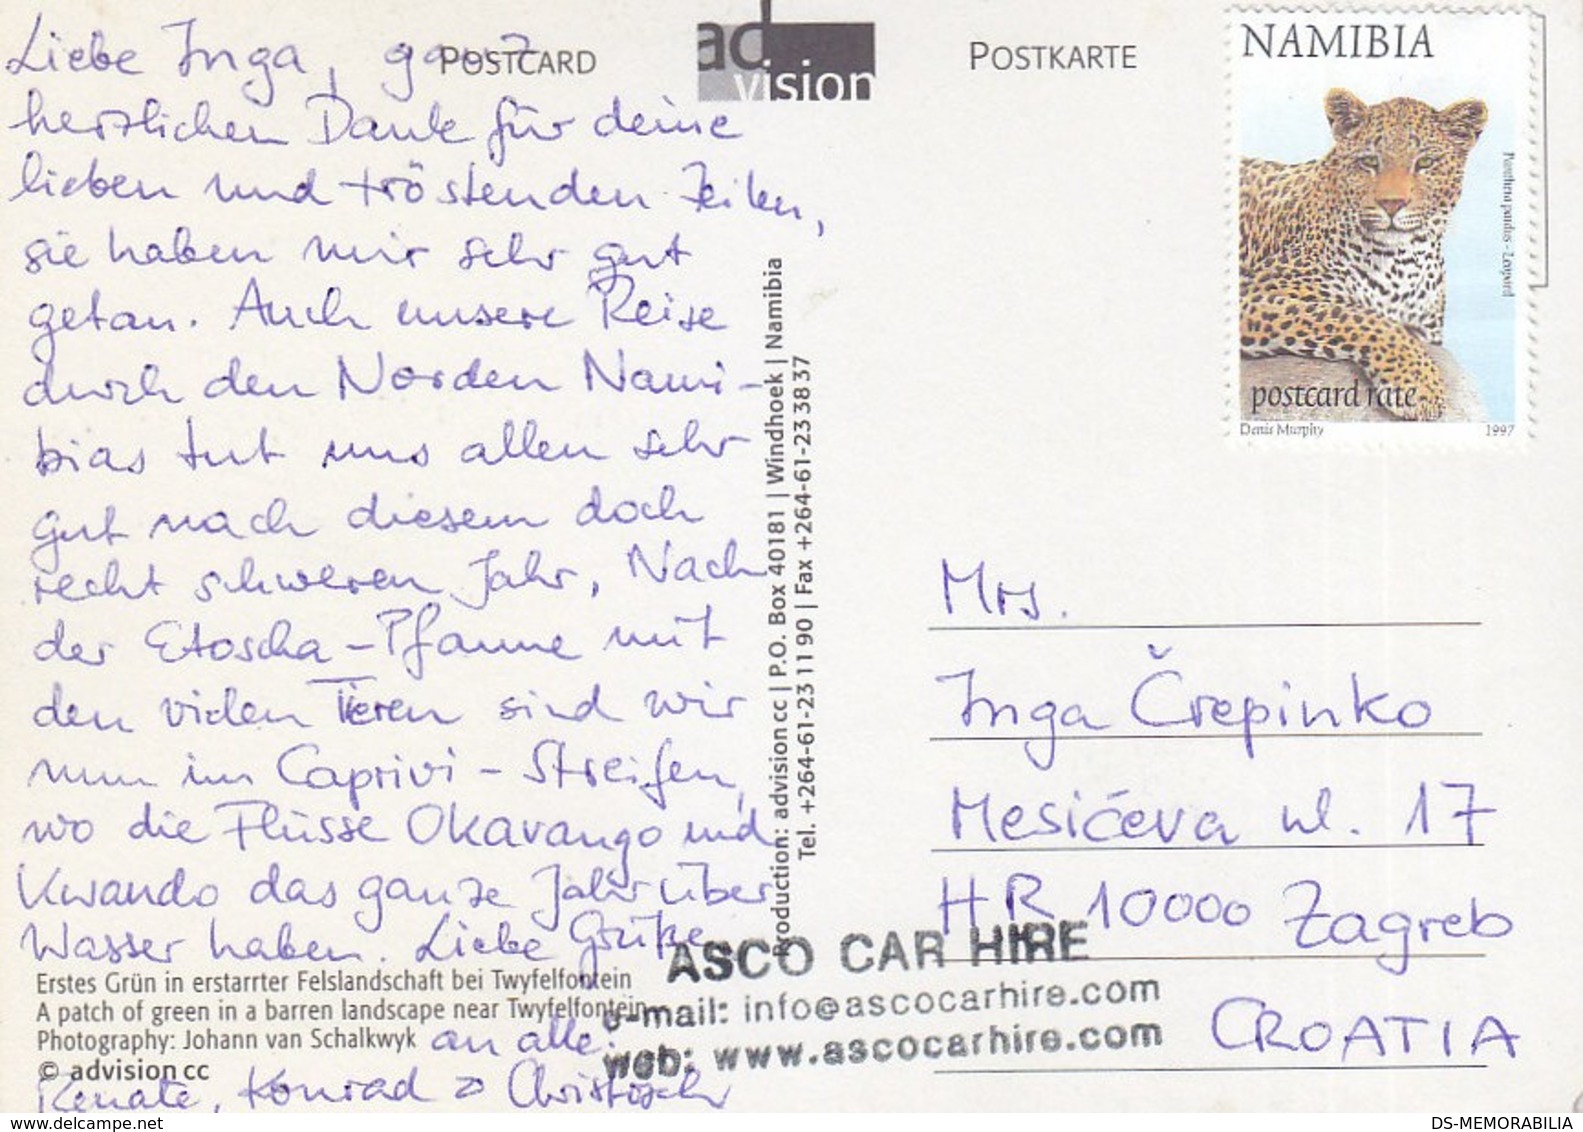 Liebe Inga, ganz
herzlichen Dank für deine
lieben und tröstenden Zeilen,
sie haben mir sehr gut
getan. Auch unsere Reise
durch den Norden Nami-
bias tut uns allen sehr
gut nach diesem doch
recht schweren Jahr. Nach
der Etoscha-Pfanne mit
den vielen Tieren sind wir
nun im Caprivi-Streifen,
wo die Flüsse Okavango und
Kwando das ganze Jahr über
Wasser haben. Liebe Grüße
an alle.
Renate, Konrad
POSTCARD
ad
vision
POSTKARTE
Erstes Grün in erstarrter Felslandschaft bei Twyfelfontein
A patch of green in a barren landscape near Twyfelfontein
Photography: Johann van Schalkwyk
© advision cc
Production: advision cc | P.O. Box 40181 | Windhoek | Namibia
Tel. +264-61-23 11 90 | Fax +264-61-23 38 37
NAMIBIA
Panthera pardus - Leopard
postcard rate
Denis Murphy
1997
Mrs.
Inga Črepinko
Mesićeva ul. 17
HR 10000 Zagreb
CROATIA
ASCO CAR HIRE
e-mail: info@ascocarhire.com
web: www.ascocarhire.com
www.delcampe.net
DS-MEMORABILIA